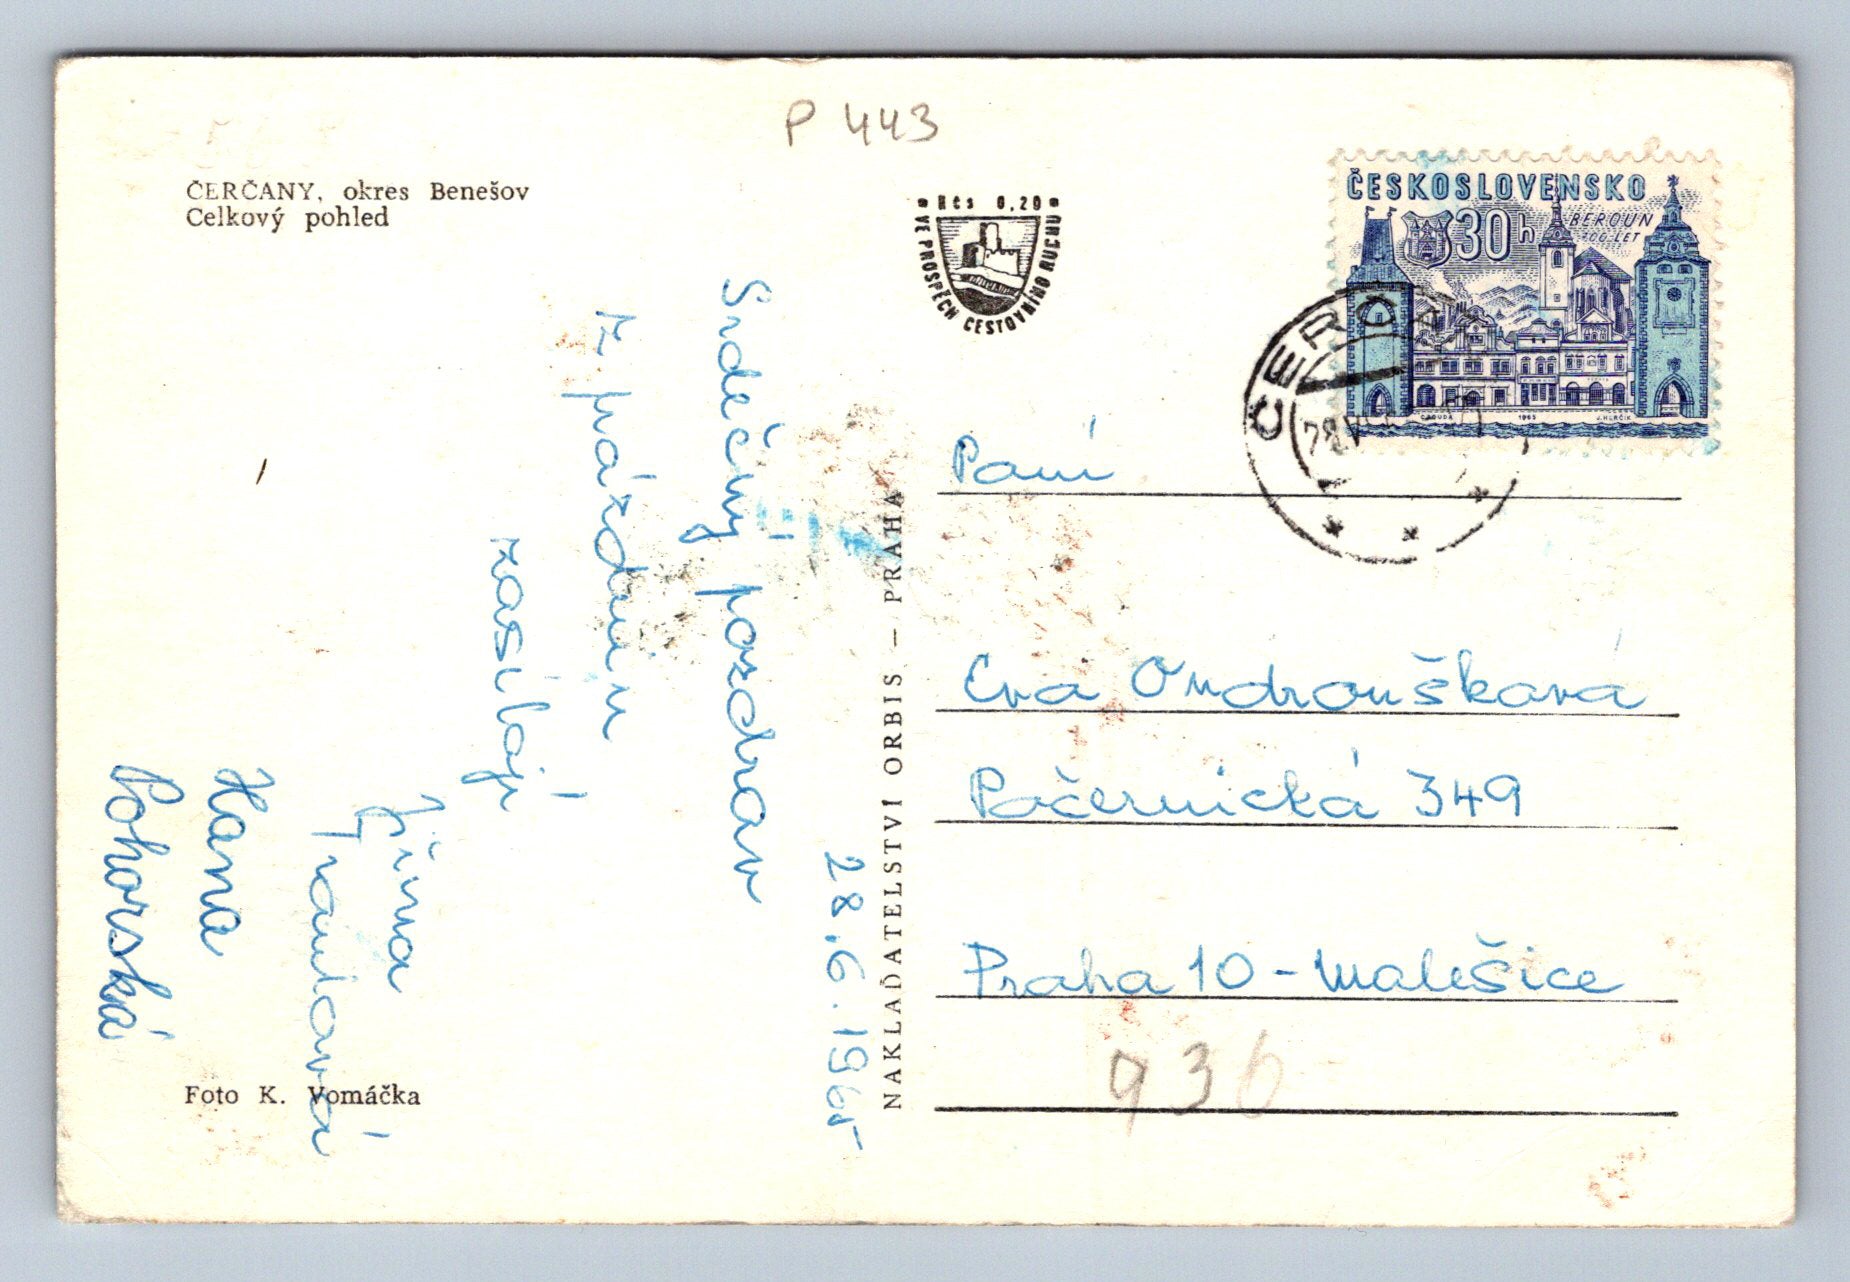 P 443
ČERČANY, okres Benešov
Celkový pohled
Kčs 0,20
VE PROSPĚCH CESTOVNÍHO RUCHU
ČESKOSLOVENSKO
30h
BEROUN
700 LET
1965
J. HERČÍK
ČERČANY
28.V
Srdečný pozdrav
z prázdnin
zasílají
Jiřina
Hana
Pohorská
28.6.1965
Foto K. Vomáčka
NAKLADATELSTVÍ ORBIS – PRAHA
Paní
Eva Ondroušková
Počernická 349
Praha 10 - Malešice
936